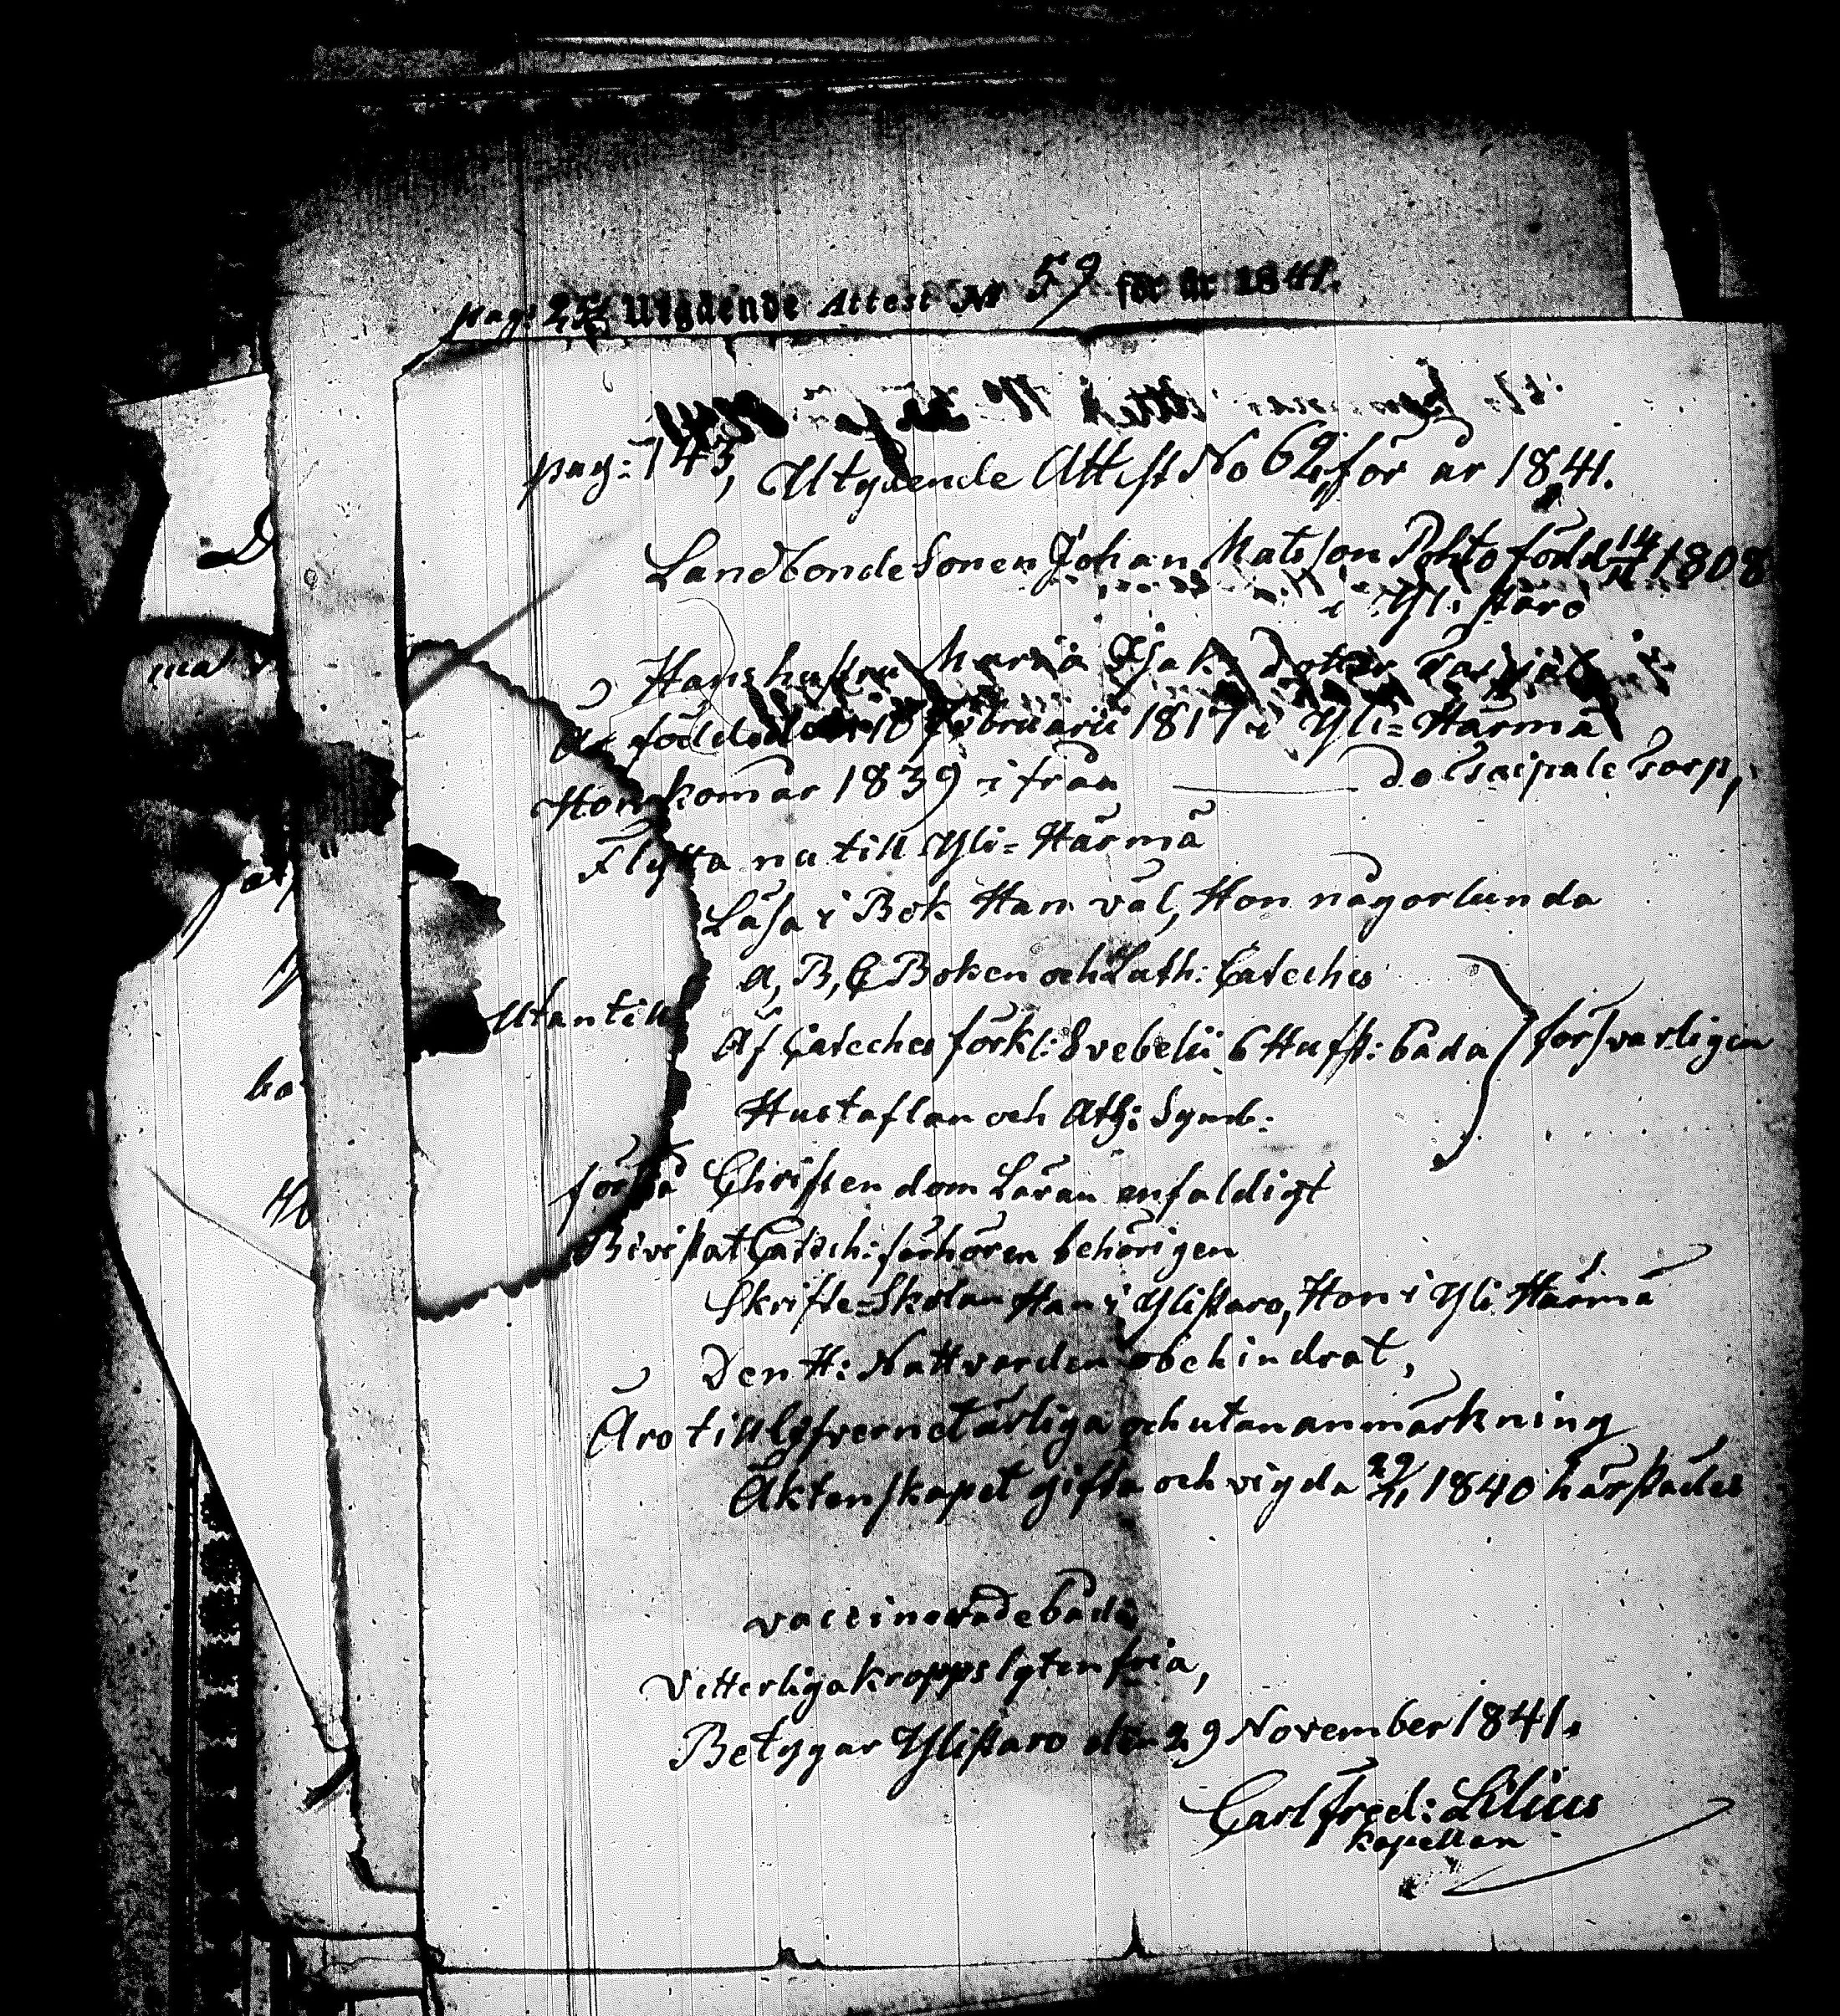 pag: 254 Utgående Attest № 59 för år 1841.
pag: 143, Utgående Attest No 62, för år 1841.
Landbonde Sonen Johan Matsson Pohto född 14/11 1808
i Yli staro
Hans hustru Maria Jsaks dotter
Är född den 10 Februarii 1817 i Yli=Härmä
Hon kom år 1839 i från do Torp,
Flytta nu till Yli=Härmä
Läsa i Bok Han väl, Hon någorlunda
A, B, C Boken och Luth: Cateches
Utantill
Af Cateches förkl: Svebelii 6 Hufst: båda försvarligen
Hustaflan och Ath: Symb:
förstå Christendom Läran enfaldigt
Bivistat Catech: förhören behörigen
Skrifte=Skolan Han i Ylistaro, Hon i Yli Härmä
Den H: Nattvarden obehindrat,
Äro till lefvernet ärliga och utan anmärkning
Äktenskapet gifta och vigda 29/11 1840 härstädes
vaccinerade båda
Vetterliga kroppslyten fria,
Betygar Ylistaro den 29 November 1841.
Carl Fred: Lilius
kapellan
ma
ba